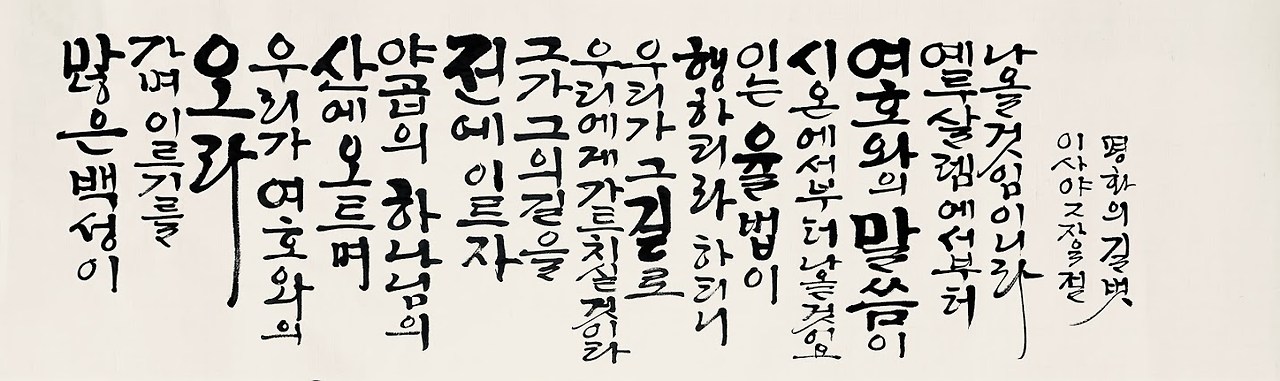 많은 백성이
가며 이르기를
오라
우리가 여호와의
산에 오르며
야곱의 하나님의
전에 이르자
그가 그의 길을
우리에게 가르치실 것이라
우리가 그 길로
행하리라 하리니
이는 율법이
시온에서부터 나올 것이요
여호와의 말씀이
예루살렘에서부터
나올 것임이니라
이사야 2장 3절
평화의 길벗